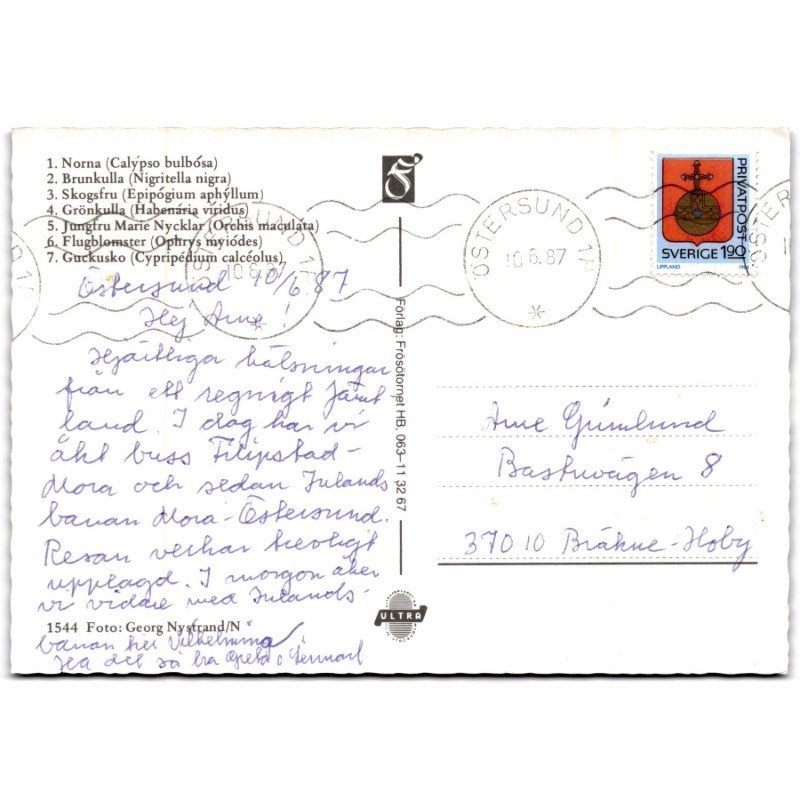 1. Norna (Calýpso bulbósa)
2. Brunkulla (Nigritella nigra)
3. Skogsfru (Epipógium aphýllum)
4. Grönkulla (Habenária víridus)
5. Jungfru Marie Nycklar (Orchis maculáta)
6. Flugblomster (Ophrys myiódes)
7. Guckusko (Cypripédium calcéolus)
Östersund 10/6.87
Hej Arne!
Hjärtliga hälsningar
från ett regnigt Jämt-
land. I dag har vi
åkt buss Filipstad-
Mora och sedan Inlands
banan Mora-Östersund.
Resan verkar trevligt
upplagd. I morgon åker
vi vidare med Inlands-
1544 Foto: Georg Nystrand/N
banan till Vilhelmina
Ha det så bra Greta o Lennart
Förlag: Frösötornet HB. 063-11 32 67
ULTRA
ÖSTERSUND 1
10.6.87
ÖSTERSUND 1
10.6.87
PRIVATPOST
SVERIGE 190
UPPLAND
Arne Grimlund
Bastuvägen 8
37010 Bräkne-Hoby